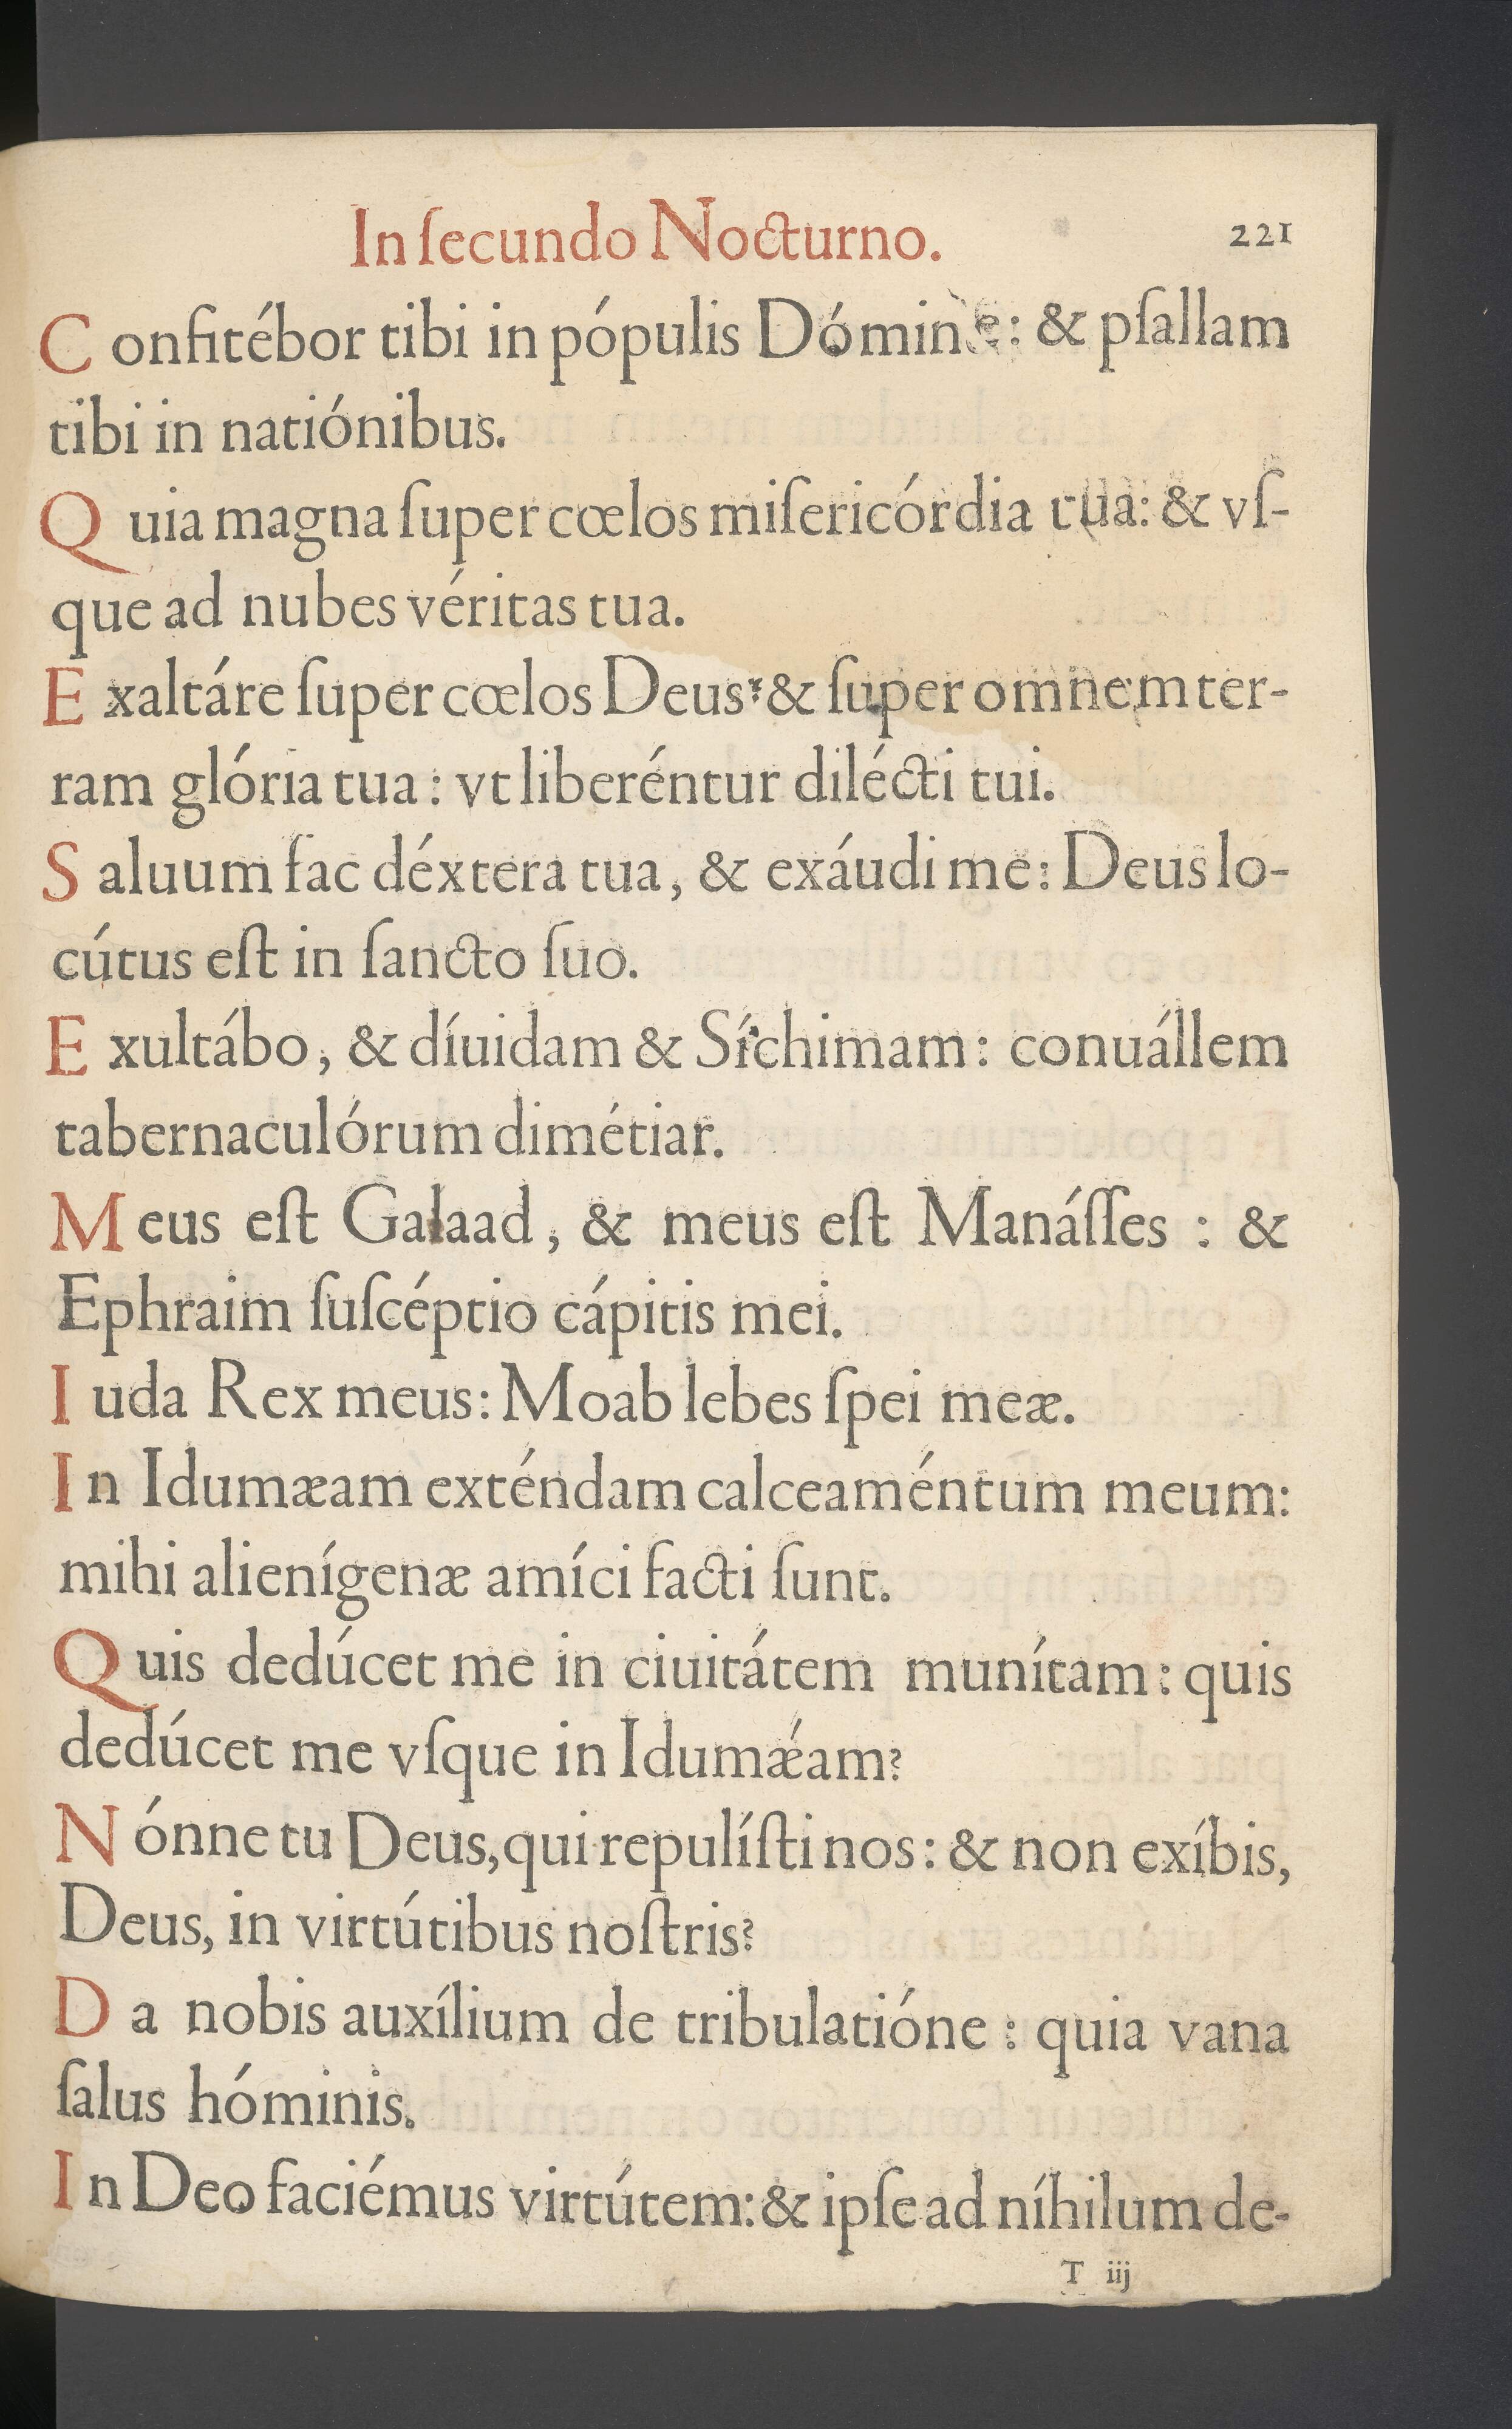 In ſecundo Nocturno. 221
Confitébor tibi in pópulis Dómine: & pſallam
tibi in natiónibus.
Quia magna ſuper cœlos miſericórdia tua: & vſ-
que ad nubes véritas tua.
Exaltáre ſuper cœlos Deus: & ſuper omnem ter-
ram glória tua: vt liberéntur dilécti tui.
Saluum fac déxtera tua, & exáudi me: Deus lo-
cútus eſt in ſancto ſuo.
Exultábo, & díuidam & Síchimam: conuállem
tabernaculórum dimétiar.
Meus eſt Galaad, & meus eſt Manáſſes : &
Ephraim ſuſcéptio cápitis mei.
Iuda Rex meus: Moab lebes ſpei meæ.
In Idumæam exténdam calceaméntum meum:
mihi alienígenæ amíci facti ſunt.
Quis dedúcet me in ciuitátem munítam: quis
dedúcet me vſque in Idumǽam?
Nónne tu Deus, qui repulíſti nos: & non exíbis,
Deus, in virtútibus noſtris?
Da nobis auxílium de tribulatióne: quia vana
ſalus hóminis.
In Deo faciémus virtútem: & ipſe ad níhilum de-
T iij